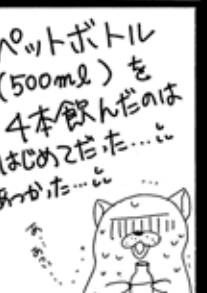 ペットボトル
(500ml)を
4本飲んだのは
はじめてだった…
あつかった…